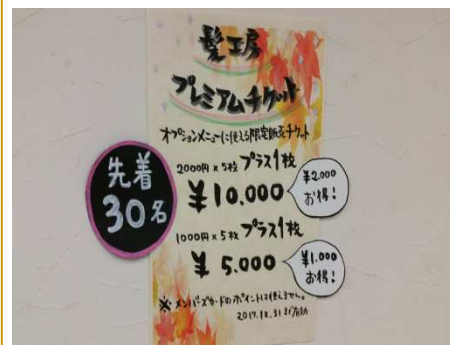 髪工房
プレミアムチケット
オプションメニューに使える限定販売チケット
先着
30名
2000円×5枚プラス1枚
¥10,000
¥2,000
お得!
1000円×5枚プラス1枚
¥5,000
¥1,000
お得!
※メンバーズカードのポイントは使えません。
2017.12.31まで有効